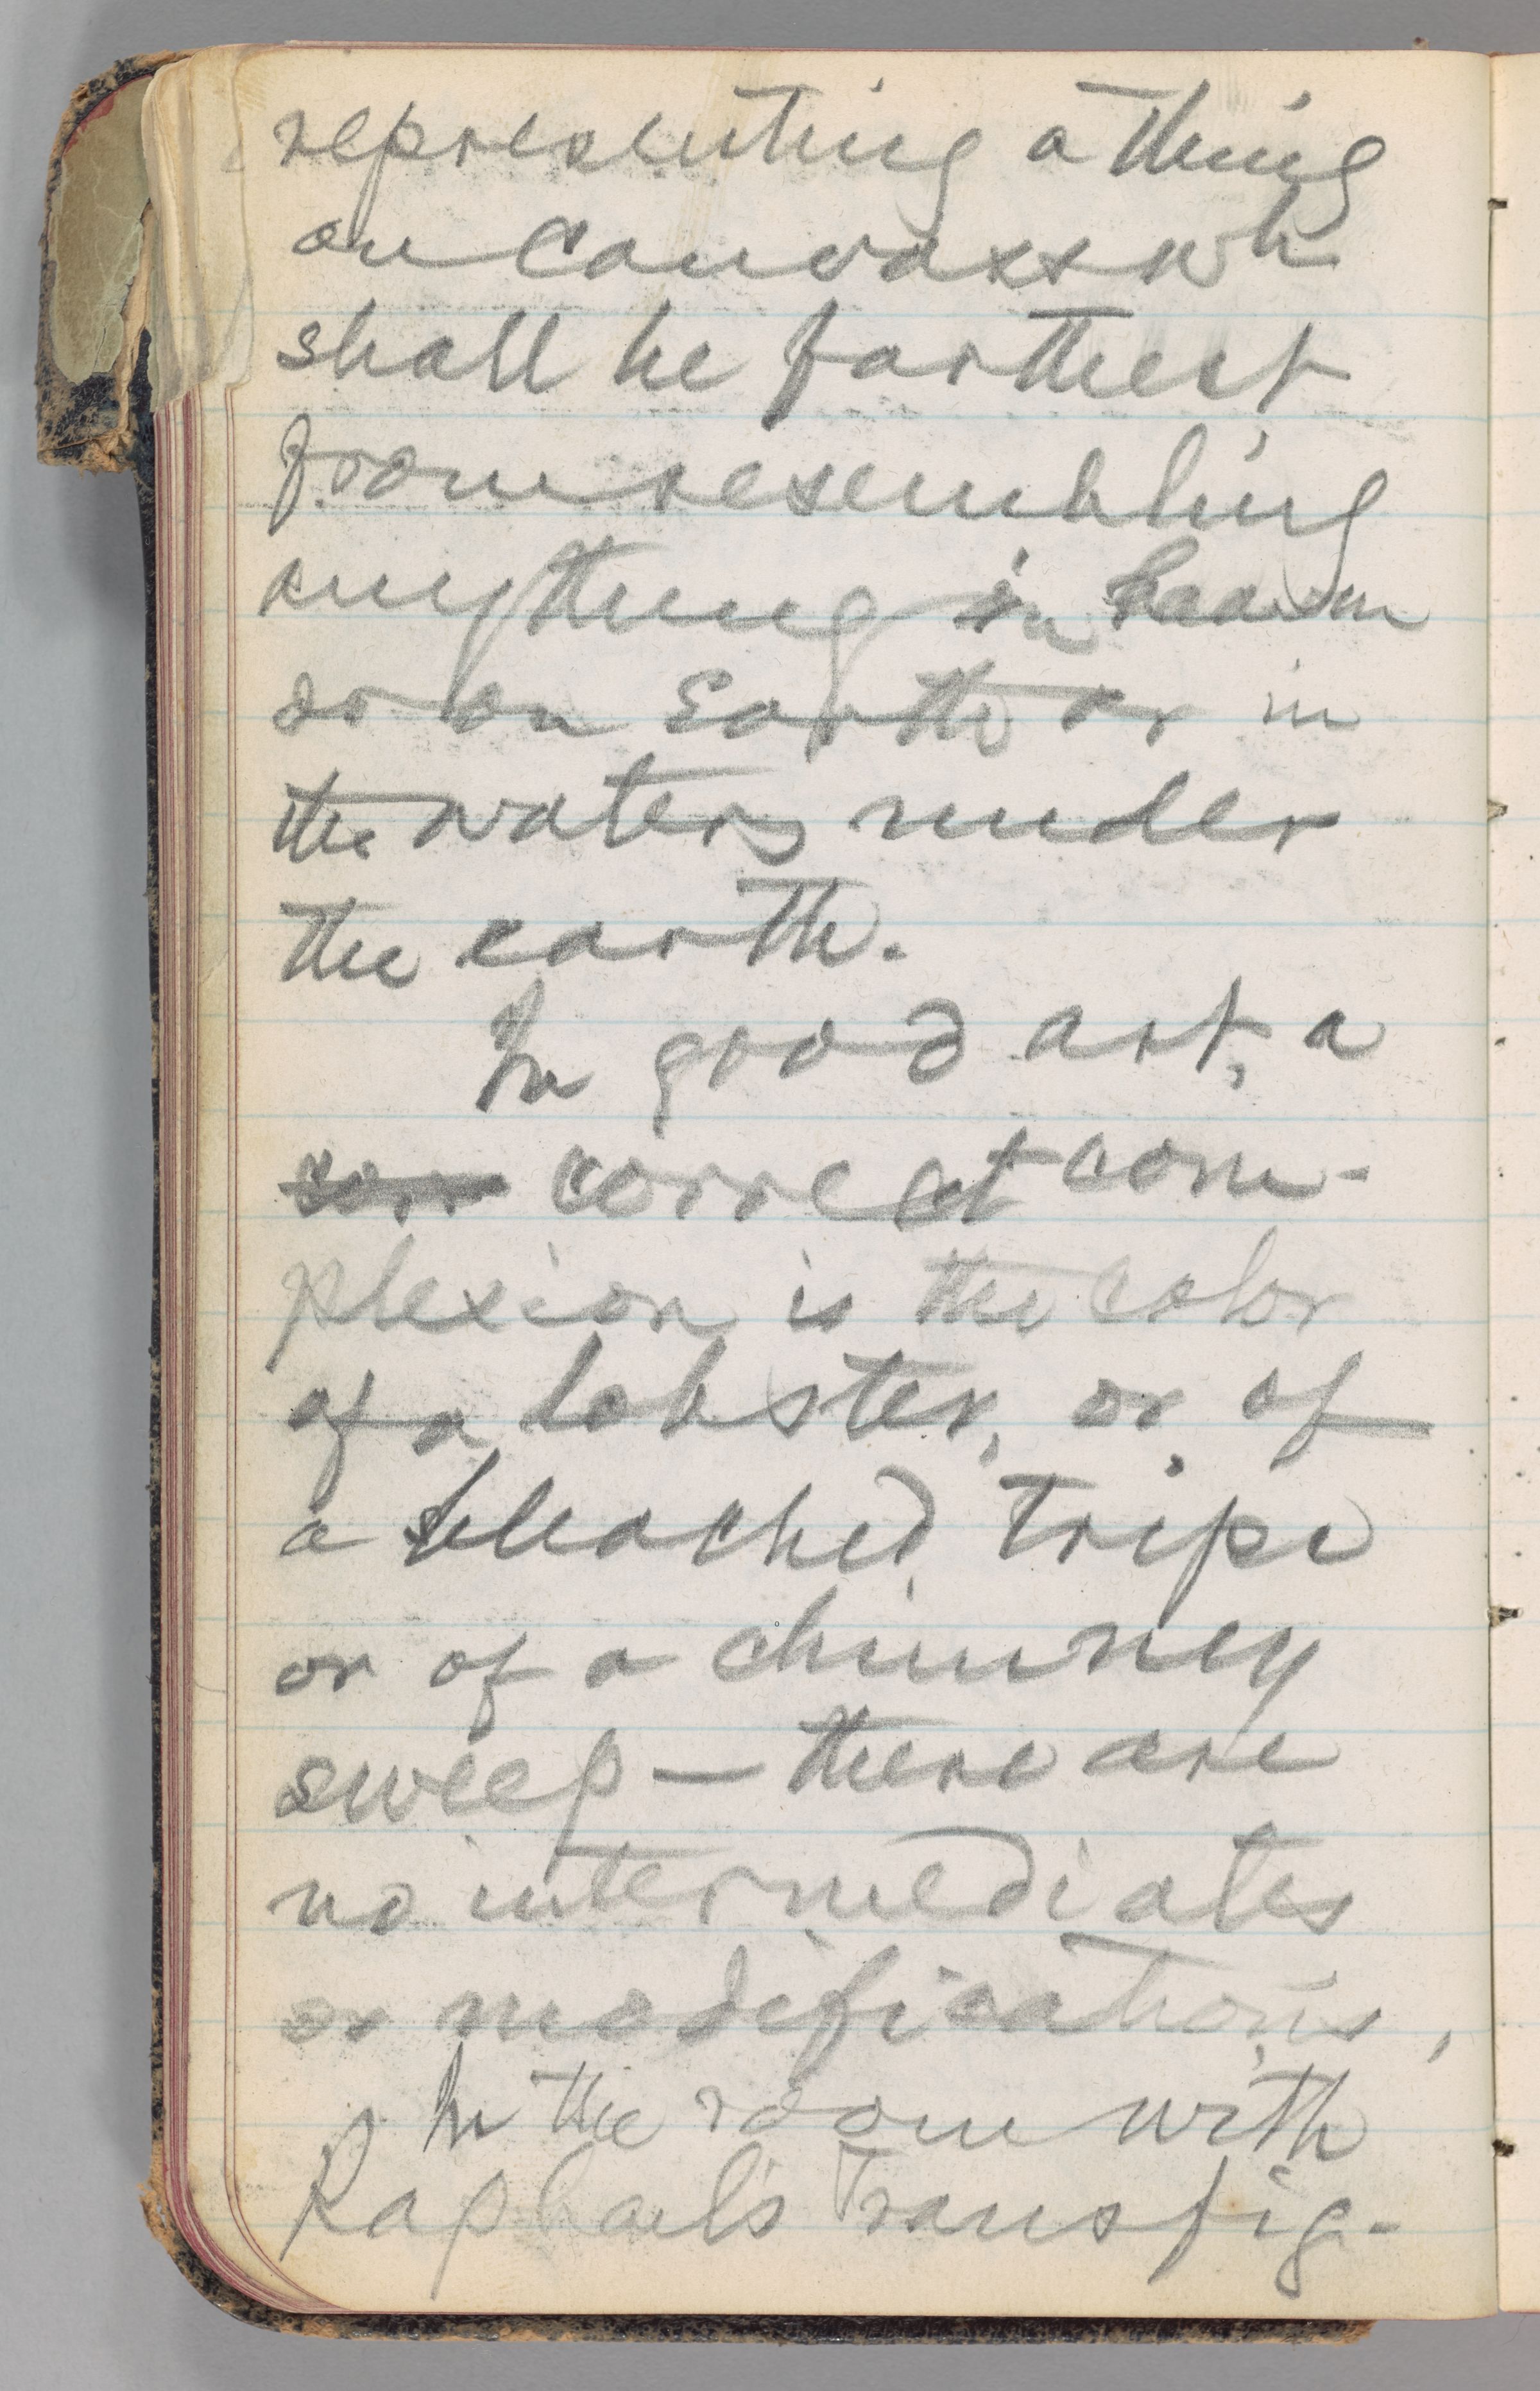 representing a thing
on canvass wh
shall be farthest
from resembling
anything in heaven
or on Earth or in
the waters under
the earth.
In good art, a
corr correct com-
plexion is the color
of a lobster, or of
a bleached tripe
or of a chimney
sweep — there are
no intermediates
or modifications,
In the room with
Raphael's Transfig-